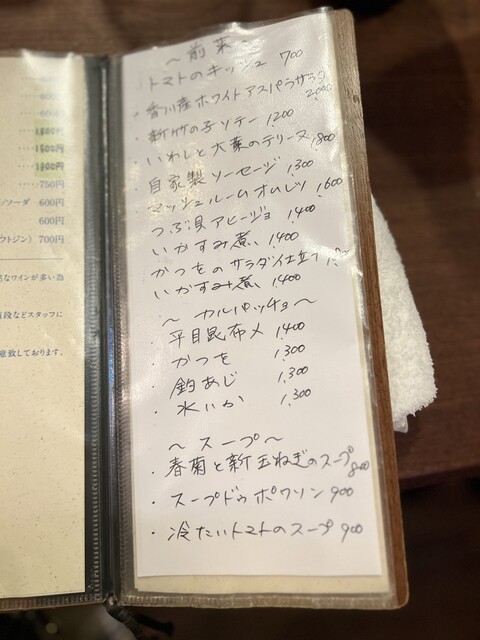 600
600
1500円
1500円
1800円
750円
ソーダ 600円
600円
ウトジン) 700円
なワインが多い為
段などスタッフに
意致しております。
〜前菜〜
トマトのキッシュ 700
・香川産ホワイトアスパラサラダ 2,000
・新竹の子ソテー 1,200
・いわしと大葉のテリーヌ 1,800
・自家製ソーセージ 1,300
マッシュルームオムレツ 1,600
つぶ貝アヒージョ 1,400
いかすみ煮 1,400
かつをのサラダ仕立て
いかすみ煮 1,400
〜カルパッチョ〜
・平目昆布〆 1,400
・かつを 1,300
・釣あじ 1,300
・水いか 1,300
〜スープ〜
・春菊と新玉ねぎのスープ 800
・スープドゥポワソン 900
・冷たいトマトのスープ 900